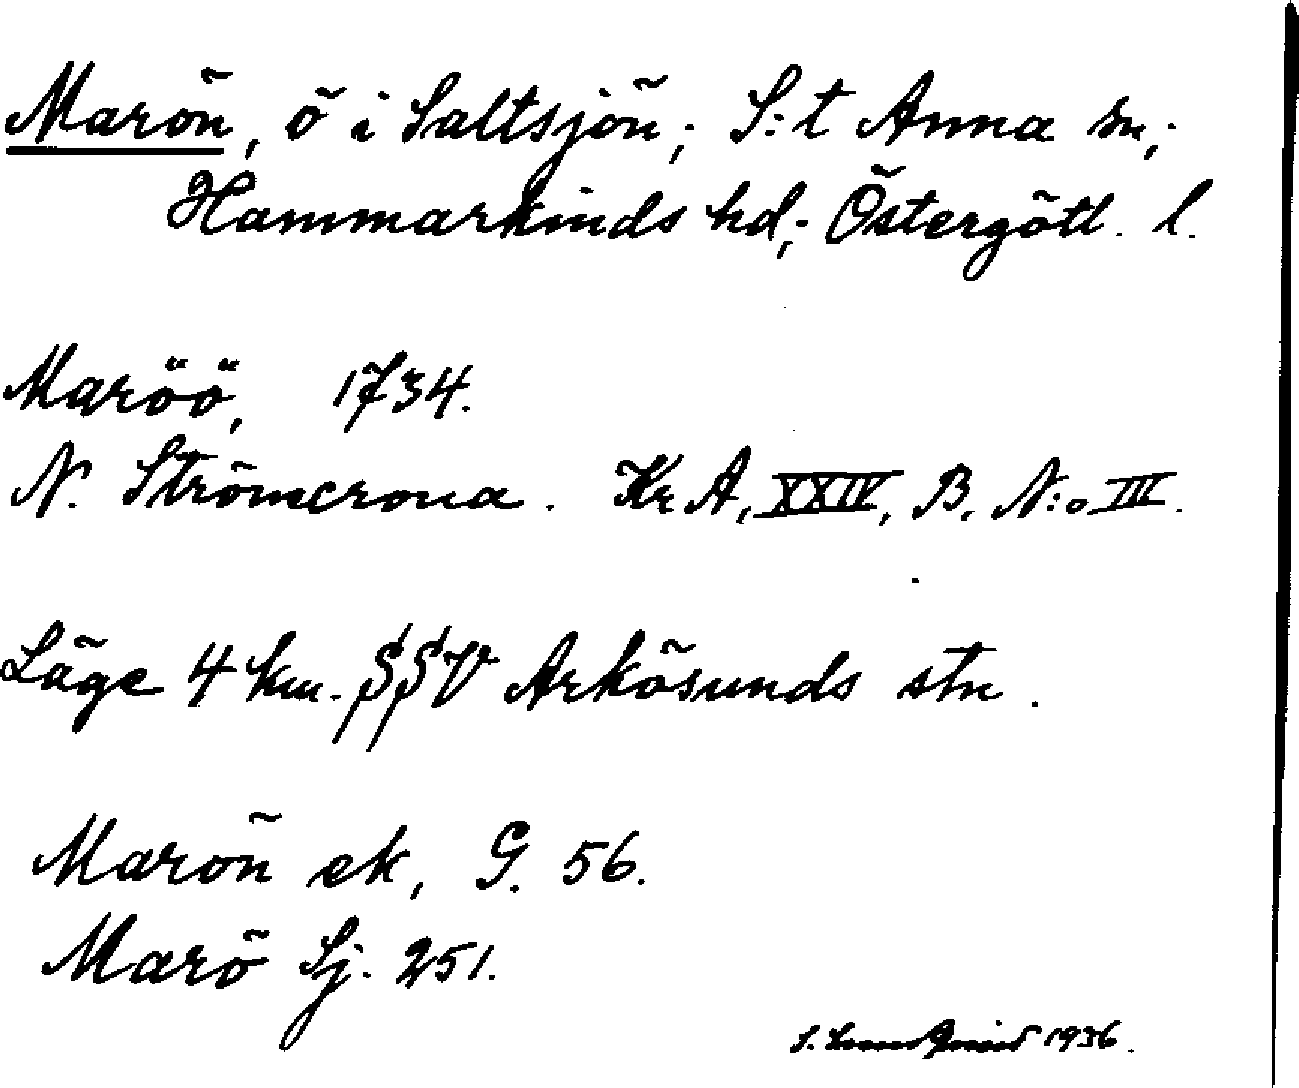 Marön, ö i Saltsjön; S:t Anna sn;
Hammarkinds hd; Östergötl. l.
Maröö, 1734.
N. Strömcrona. Kr A, XXIV, B, N:o III.
Läge 4 km. SSV Arkösunds stn.
Marön ek, G. 56.
Marö Sj. 251.
S. 1936.